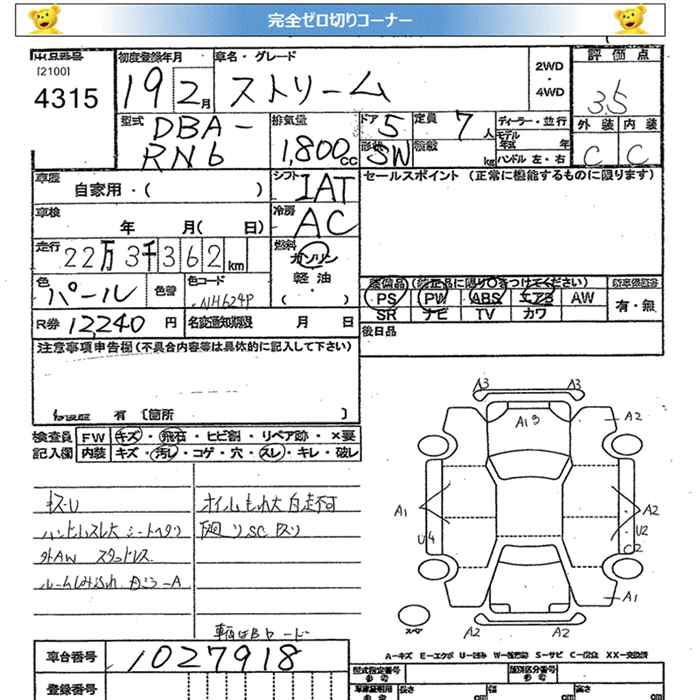 完全ゼロ切りコーナー
出品番号
[2100]
4315
初度登録年月
19 2月
車名・グレード
ストリーム
2WD
・
4WD
評価点
3.5
型式
DBA-
RN6
排気量
1,800cc
ドア 5
定員 7人
形状 SW
積載 kg
ディーラー・並行
モデル年式 年
ハンドル 左・右
外装 内装
C C
車歴
自家用・( )
シフト
IAT
セールスポイント (正常に機能するものに限ります)
車検
年 月( 日)
冷房
AC
走行
22万3千362km
燃料
ガソリン
・
軽油
・
( )
色
パール
色替
色コード
NH624P
装備品 (純正品に限り○をつけてください)
PS PW ABS エアB AW
SR ナビ TV カワ
新車保証書
有・無
R券 12240円
名変通知期限 月 日
後日品
注意事項申告欄(不具合内容等は具体的に記入して下さい)
有 〔箇所 〕
検査員
記入欄
FW キズ・飛石・ヒビ割・リペア跡・×要
内装 キズ・汚レ・コゲ・穴・スレ・キレ・破レ
キズ・U
オイルもれ大 自走不可
ハンドルスレ大 シートヘタリ
廻りSC及り
外AW スタッドレス
ルームしみ汚れ
A3 A3
A1 3
A2
A1
U4
A2
U2
C2
A1
A2 A2
スペア
A-キズ E-エクボ U-凹み W-補修跡 S-サビ C-腐食 XX-交換済
車台番号
1027918
型式指定番号
類別区分番号
登録番号
長さ cm
幅 cm
高さ cm